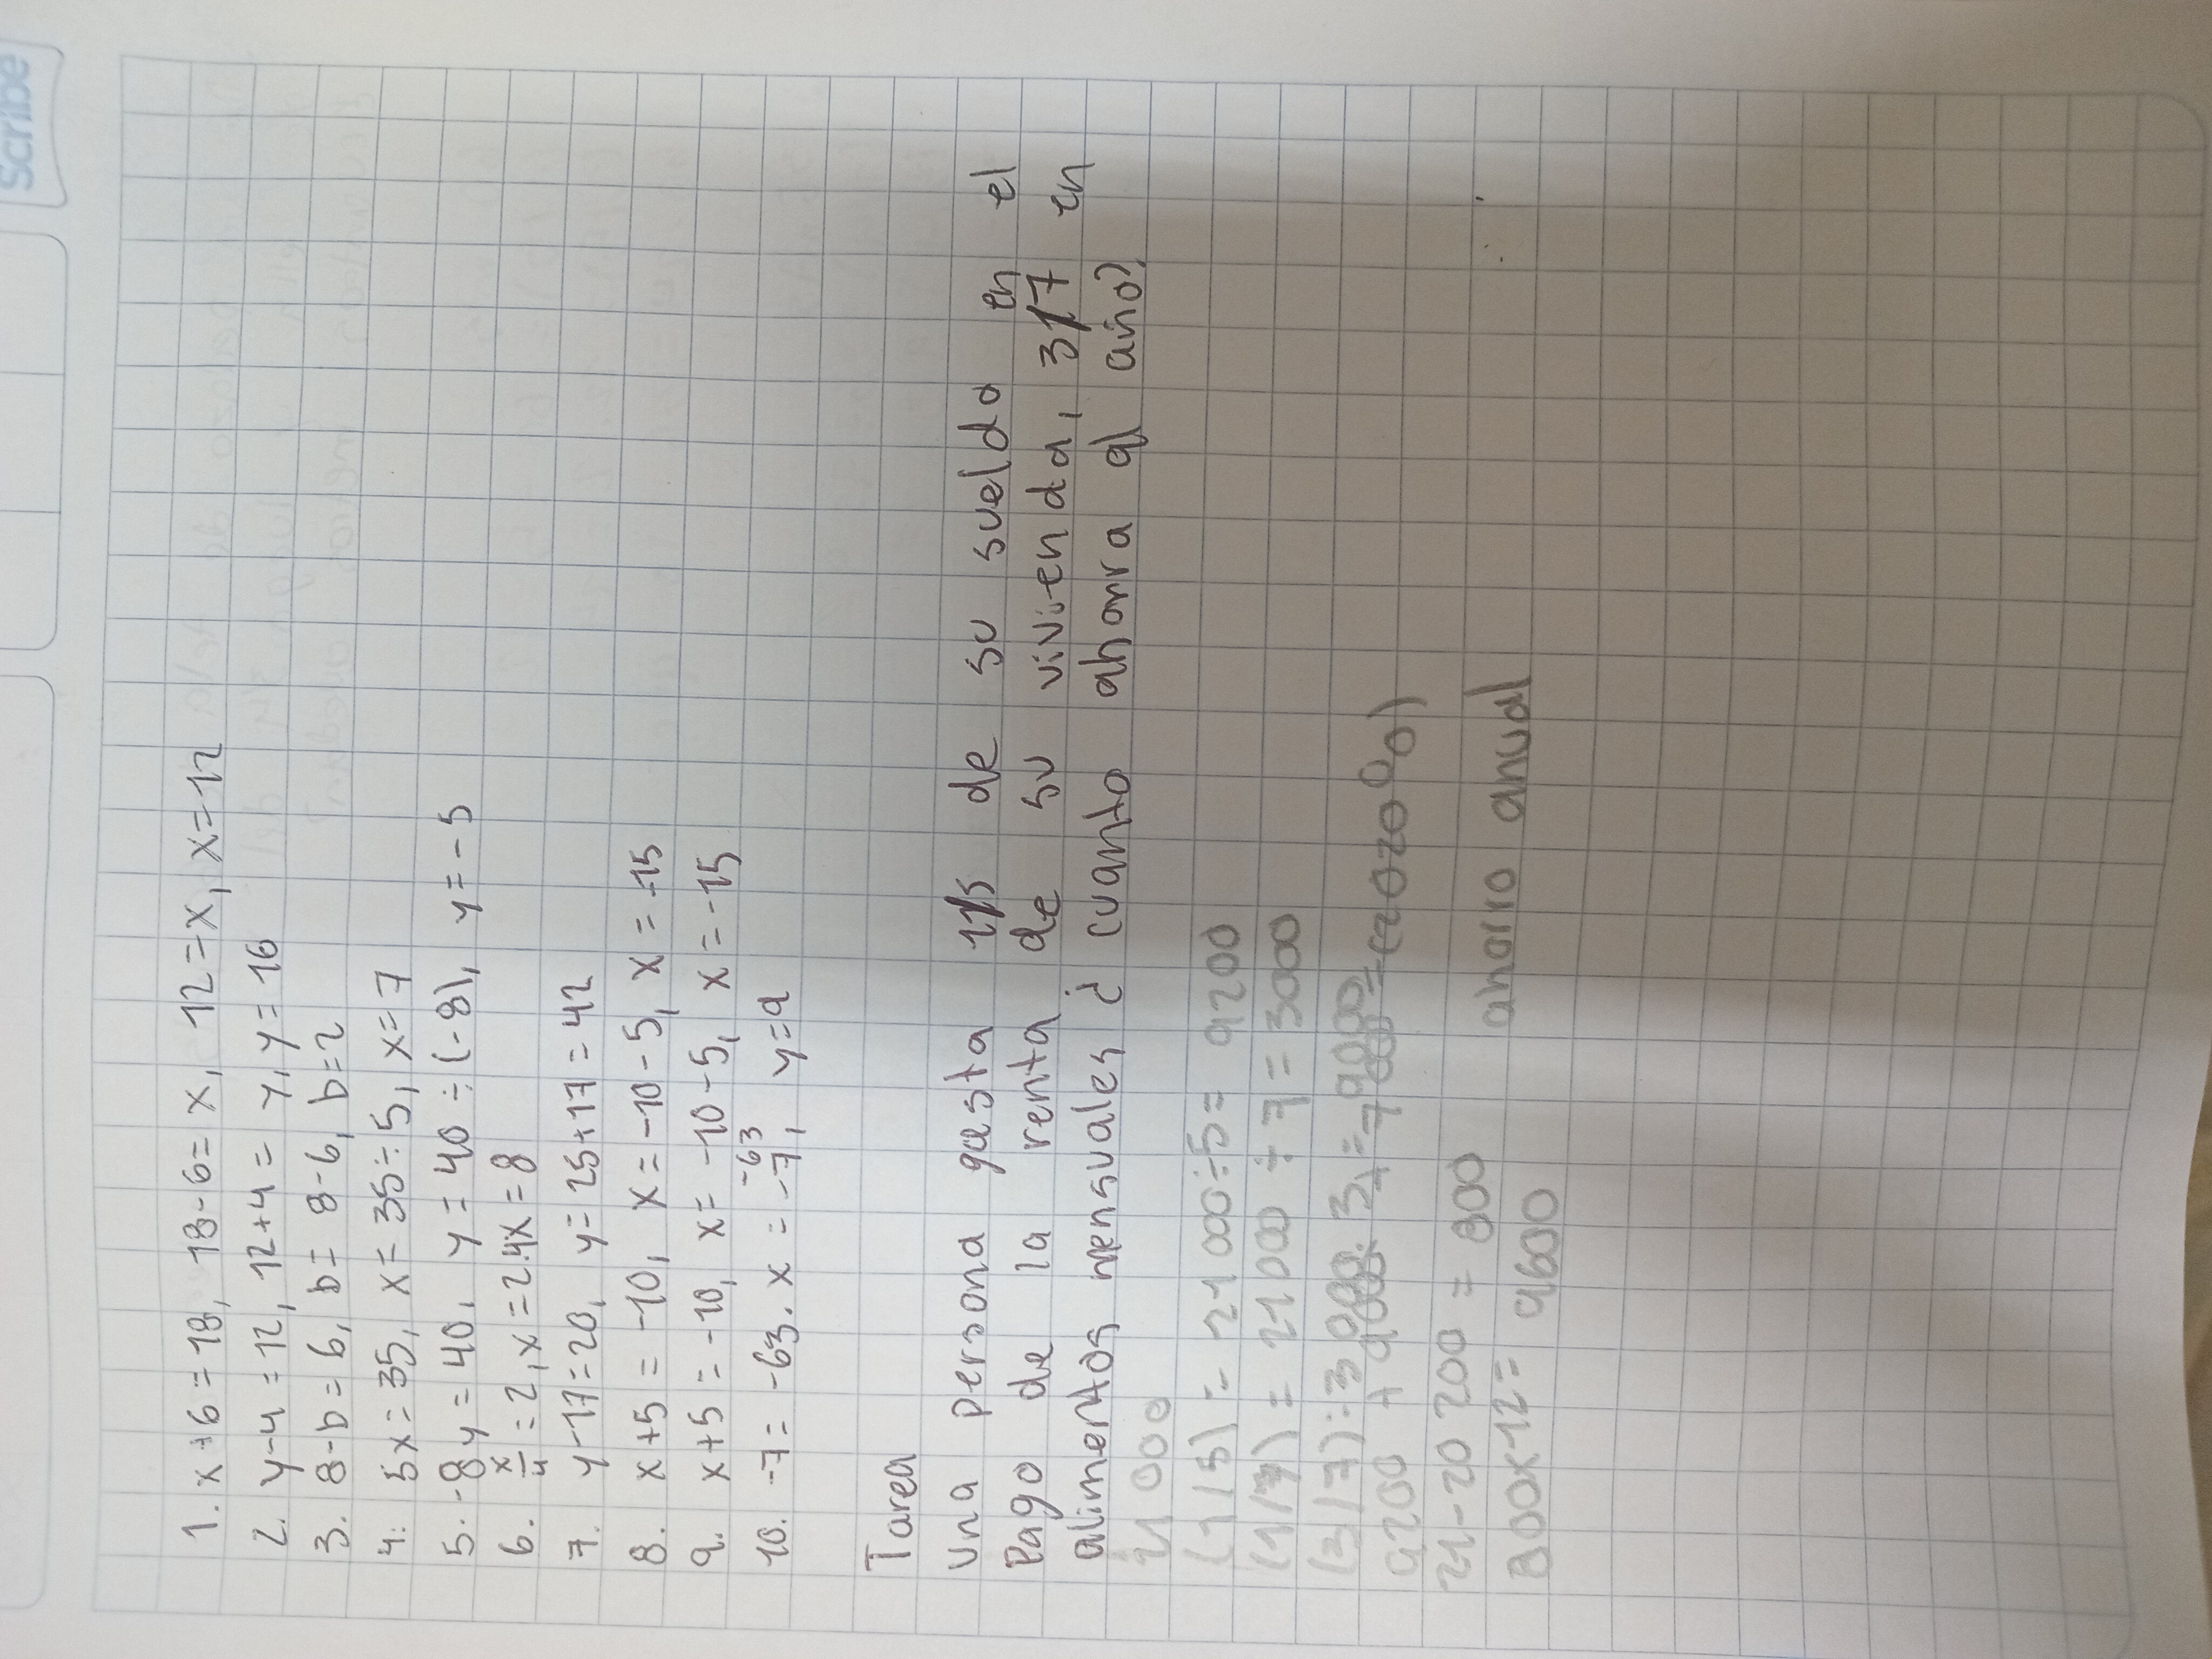 Scribe
1. x+6=18, 18-6=x, 12=x, x=12
2. y-4=12, 12+4= y, y=16
3. 8-b=6, b= 8-6, b=2
4. 5x=35, x=35÷5, x=7
5. -8y=40, y=40÷(-8), y=-5
6. x/4=2, x=2.4x=8
7. y-17=20, y=25+17=42
8. x+5=-10, x=-10-5, x=-15
9. x+5=-10, x=-10-5, x=-15
10. -7= -63. x= -63/-7, y=9
Tarea
Una persona gasta 1/5 de su sueldo en el
Pago de la renta de su vivienda, 3/7 en
alimentos mensuales ¿ cuanto ahorra al año?
21 000
(1/5) = 21 000÷5= 4200
(1/7) = 21000 ÷7=3000
(3/7): 3 000. 3 = 9000
4200 +
21-20 200 = 800
800x12= 9600 ahorro anual